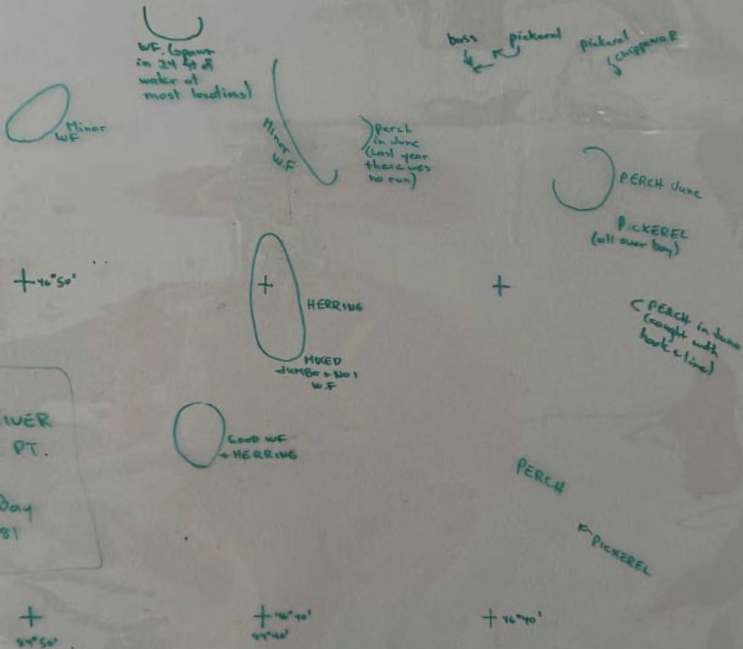 WF. (spawn
in 24 ft of
water at
most locations)
bass
pickerel
pickerel
Chippewa R
Minor
WF
Minor
W.F
perch
in June
(Last year
there was
no run)
PERCH June
PICKEREL
(all over bay)
46°50'
HERRING
MIXED
JUMBO + No 1
W.F
PERCH in June
(caught with
hook + line)
IVER
PT.
Bay
81
GOOD WF
+ HERRING
PERCH
PICKEREL
84°50'
46°40'
84°40'
46°40'